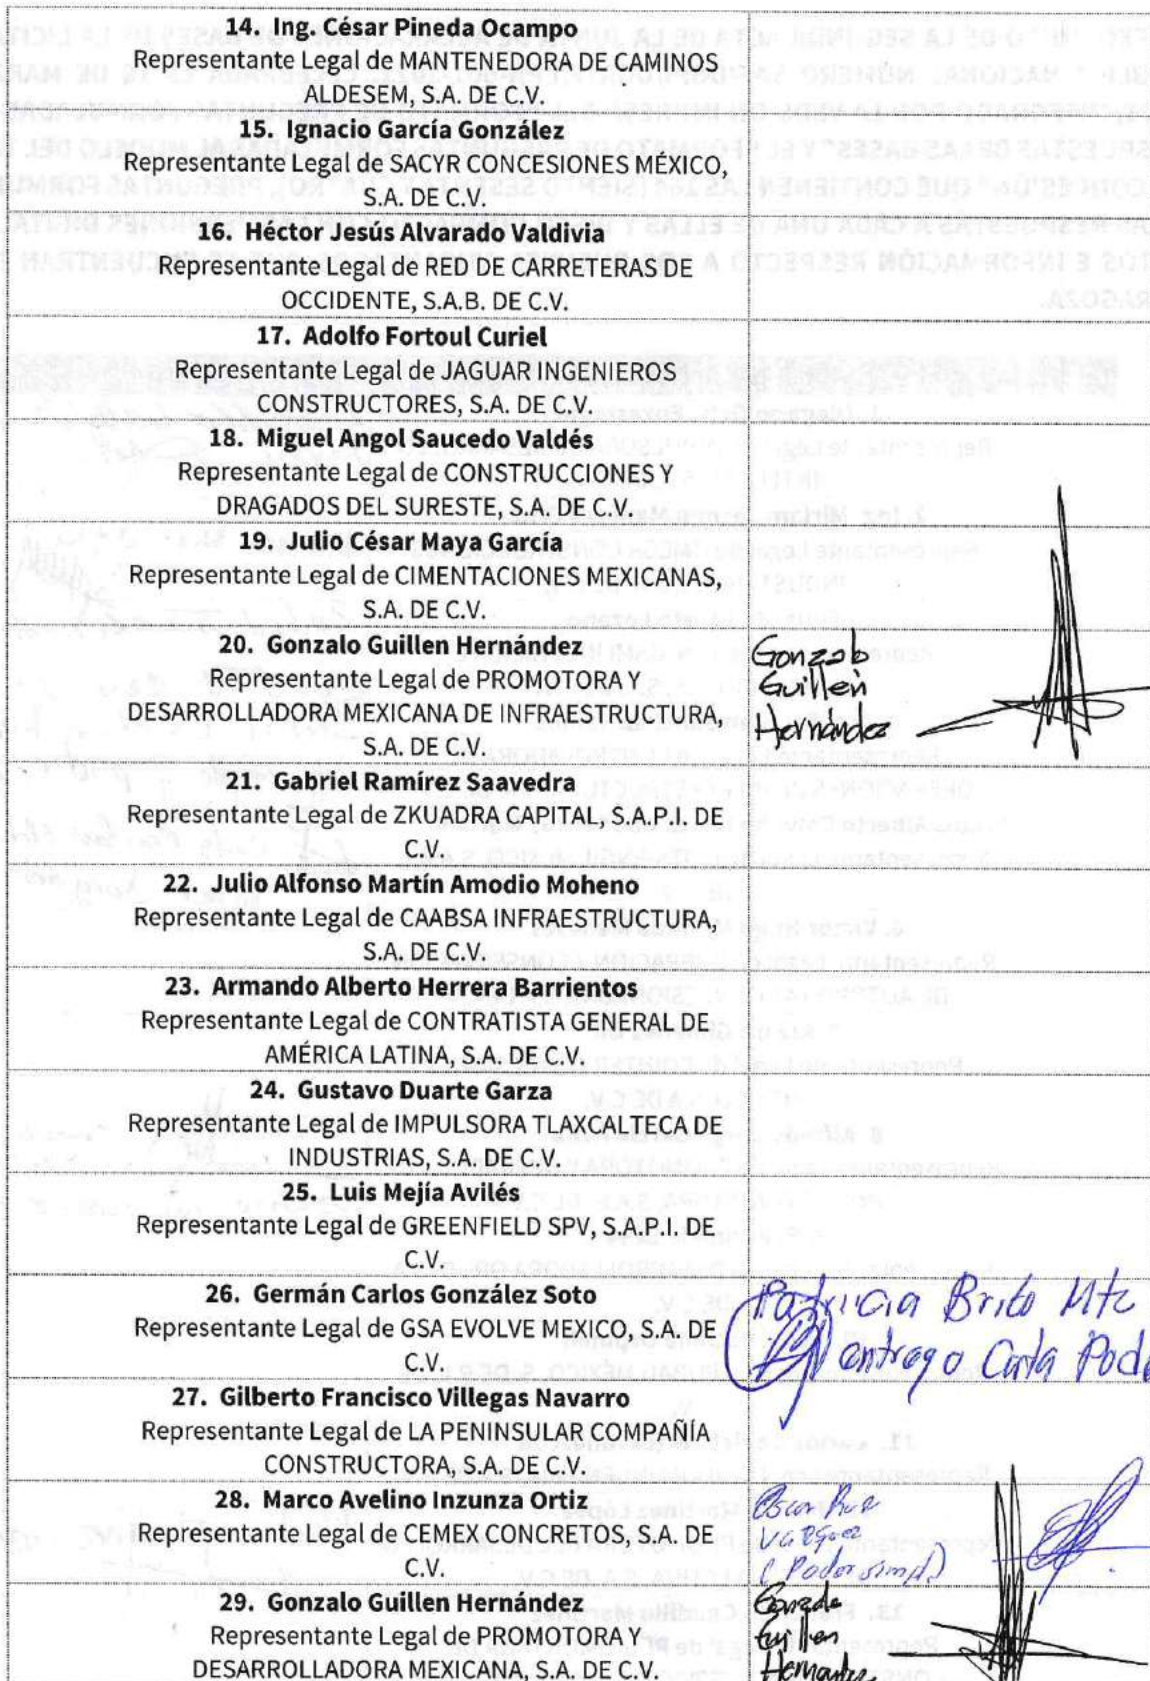 14. Ing. César Pineda Ocampo
Representante Legal de MANTENEDORA DE CAMINOS
ALDESEM, S.A. DE C.V.
15. Ignacio García González
Representante Legal de SACYR CONCESIONES MÉXICO,
S.A. DE C.V.
16. Héctor Jesús Alvarado Valdivia
Representante Legal de RED DE CARRETERAS DE
OCCIDENTE, S.A.B. DE C.V.
17. Adolfo Fortoul Curiel
Representante Legal de JAGUAR INGENIEROS
CONSTRUCTORES, S.A. DE C.V.
18. Miguel Angol Saucedo Valdés
Representante Legal de CONSTRUCCIONES Y
DRAGADOS DEL SURESTE, S.A. DE C.V.
19. Julio César Maya García
Representante Legal de CIMENTACIONES MEXICANAS,
S.A. DE C.V.
20. Gonzalo Guillen Hernández
Representante Legal de PROMOTORA Y
DESARROLLADORA MEXICANA DE INFRAESTRUCTURA,
S.A. DE C.V.
Gonzalo
Guillen
Hernández
21. Gabriel Ramírez Saavedra
Representante Legal de ZKUADRA CAPITAL, S.A.P.I. DE
C.V.
22. Julio Alfonso Martín Amodio Moheno
Representante Legal de CAABSA INFRAESTRUCTURA,
S.A. DE C.V.
23. Armando Alberto Herrera Barrientos
Representante Legal de CONTRATISTA GENERAL DE
AMÉRICA LATINA, S.A. DE C.V.
24. Gustavo Duarte Garza
Representante Legal de IMPULSORA TLAXCALTECA DE
INDUSTRIAS, S.A. DE C.V.
25. Luis Mejía Avilés
Representante Legal de GREENFIELD SPV, S.A.P.I. DE
C.V.
26. Germán Carlos González Soto
Representante Legal de GSA EVOLVE MEXICO, S.A. DE
C.V.
Patricia Brito Mtz
entrego Carta Pode
27. Gilberto Francisco Villegas Navarro
Representante Legal de LA PENINSULAR COMPAÑÍA
CONSTRUCTORA, S.A. DE C.V.
28. Marco Avelino Inzunza Ortiz
Representante Legal de CEMEX CONCRETOS, S.A. DE
C.V.
Oscar
(Poder
29. Gonzalo Guillen Hernández
Representante Legal de PROMOTORA Y
DESARROLLADORA MEXICANA, S.A. DE C.V.
Gonzalo
Guillen
Hernandez